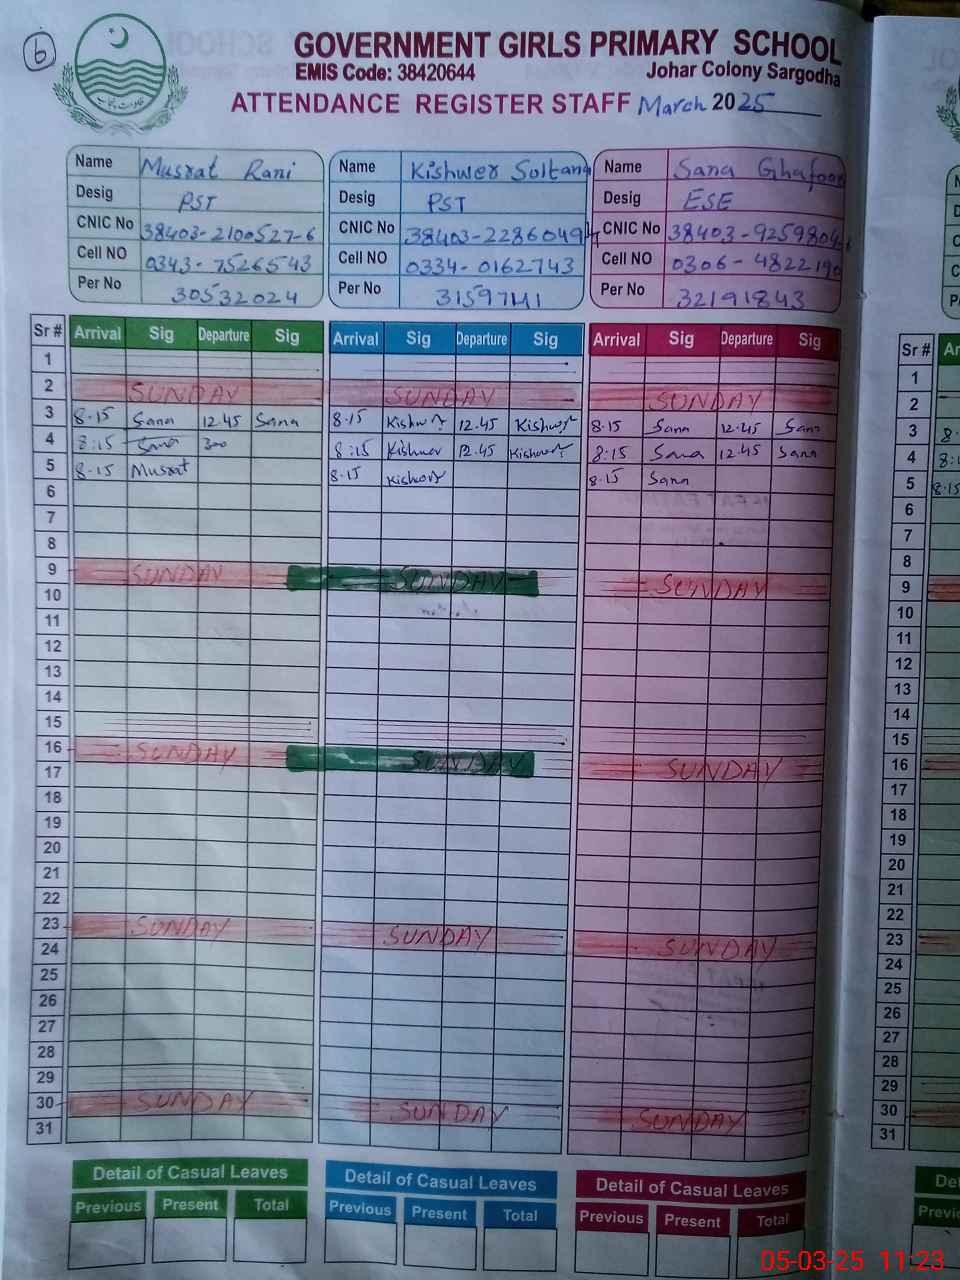 6
GOVERNMENT GIRLS PRIMARY SCHOOL
EMIS Code: 38420644 Johar Colony Sargodha
ATTENDANCE REGISTER STAFF March 2025
Name Musrat Rani Name Kishwer Sultana Name Sana Ghafoor
Desig PST Desig PST Desig ESE
CNIC No 38403-2100527-6 CNIC No 38403-2286049-4 CNIC No 38403-9259804-6
Cell NO 0343-7526543 Cell NO 0334-0162743 Cell NO 0306-4822190
Per No 30532024 Per No 31597141 Per No 32191843
Sr # Arrival Sig Departure Sig Arrival Sig Departure Sig Arrival Sig Departure Sig Sr #
1 1
2 SUNDAY SUNDAY SUNDAY 2
3 8.15 Sana 12.45 Sana 8.15 Kishwer 12.45 Kishwer 8.15 Sana 12.45 Sana 3
4 8:15 Sana 300 8:15 Kishwer 12.45 Kishwer 8:15 Sana 12.45 Sana 4
5 8.15 Musrat 8.15 Kishwer 8.15 Sana 5 8.15
6 6
7 7
8 8
9 SUNDAY SUNDAY SUNDAY 9
10 10
11 11
12 12
13 13
14 14
15 15
16 SUNDAY SUNDAY SUNDAY 16
17 17
18 18
19 19
20 20
21 21
22 22
23 SUNDAY SUNDAY SUNDAY 23
24 24
25 25
26 26
27 27
28 28
29 29
30 SUNDAY SUNDAY SUNDAY 30
31 31
Detail of Casual Leaves Detail of Casual Leaves Detail of Casual Leaves
Previous Present Total Previous Present Total Previous Present Total
05-03-25 11:23